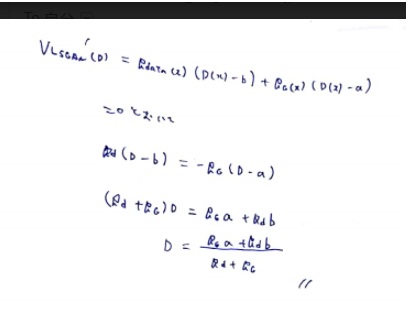 V_LSGAN'(D) = P_data(x) (D(x) - b) + P_G(x) (D(x) - a)
= 0
P_d (D - b) = -P_G (D - a)
(P_d + P_G) D = P_G a + P_d b
D = (P_G a + P_d b) / (P_d + P_G)